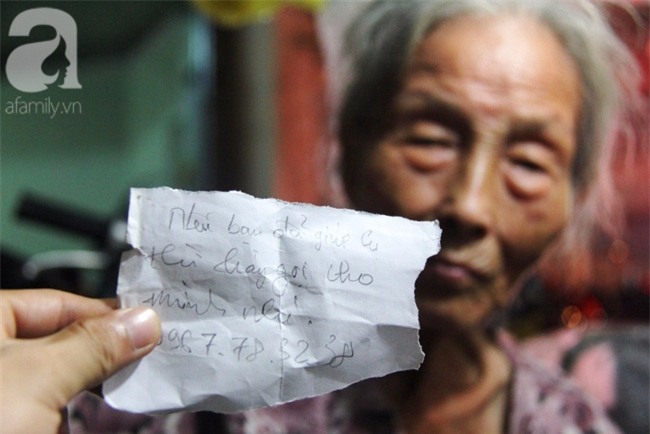 a
afamily.vn
Nếu bạn đã giúp cụ
thì hãy gọi cho
mình nhé.
0967.78.32.38